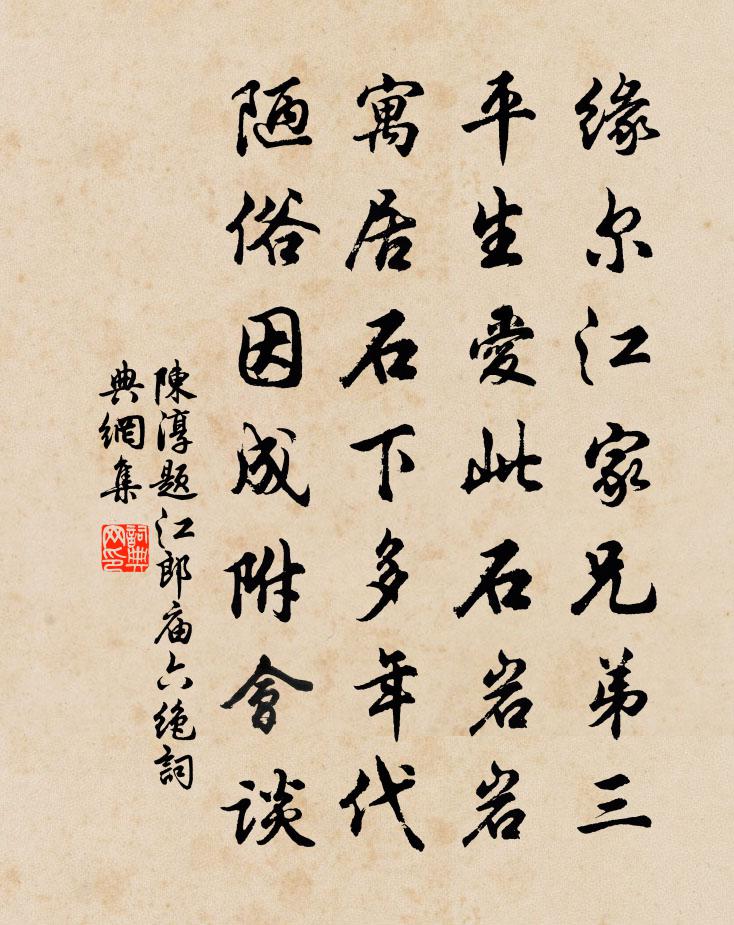 缘尔江家兄弟三
平生愛此石岩岩
寓居石下多年代
陋俗因成附會谈
陳淳题江郎庙六絶詞
典網集
詞典网印